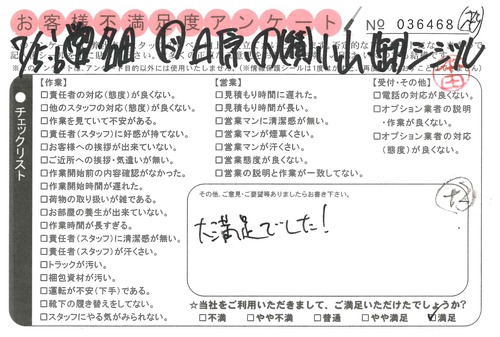 お客様不満足度アンケート
No 036468
チェックリスト
【作業】
□責任者の対応(態度)が良くない。
□他のスタッフの対応(態度)が良くない。
□作業を見ていて不安がある。
□責任者(スタッフ)に好感が持てない。
□お客様への挨拶が出来ていない。
□ご近所への挨拶・気遣いが無い。
□作業開始前の内容確認がなかった。
□作業開始時間が遅れた。
□荷物の取り扱いが雑である。
□お部屋の養生が出来ていない。
□作業時間が長すぎる。
□責任者(スタッフ)に清潔感が無い。
□責任者(スタッフ)が汗くさい。
□トラックが汚い。
□梱包資材が汚い。
□運転が不安(下手)である。
□靴下の履き替えをしてない。
□スタッフにやる気がみられない。
【営業】
□見積もり時間に遅れた。
□見積もり時間が長い。
□営業マンに清潔感が無い。
□営業マンが煙草くさい。
□営業マンが汗くさい。
□営業態度が良くない。
□営業の説明と作業が一致してない。
【受付・その他】
□電話の対応が良くない。
□オプション業者の説明
・作業が良くない。
□オプション業者の対応
(態度)が良くない。
その他、ご意見・ご要望等ありましたらお書き下さい。
大満足でした!
☆当社をご利用いただきまして、ご満足いただけたでしょうか?
□不満 □やや不満 □普通 □やや満足 ☑満足